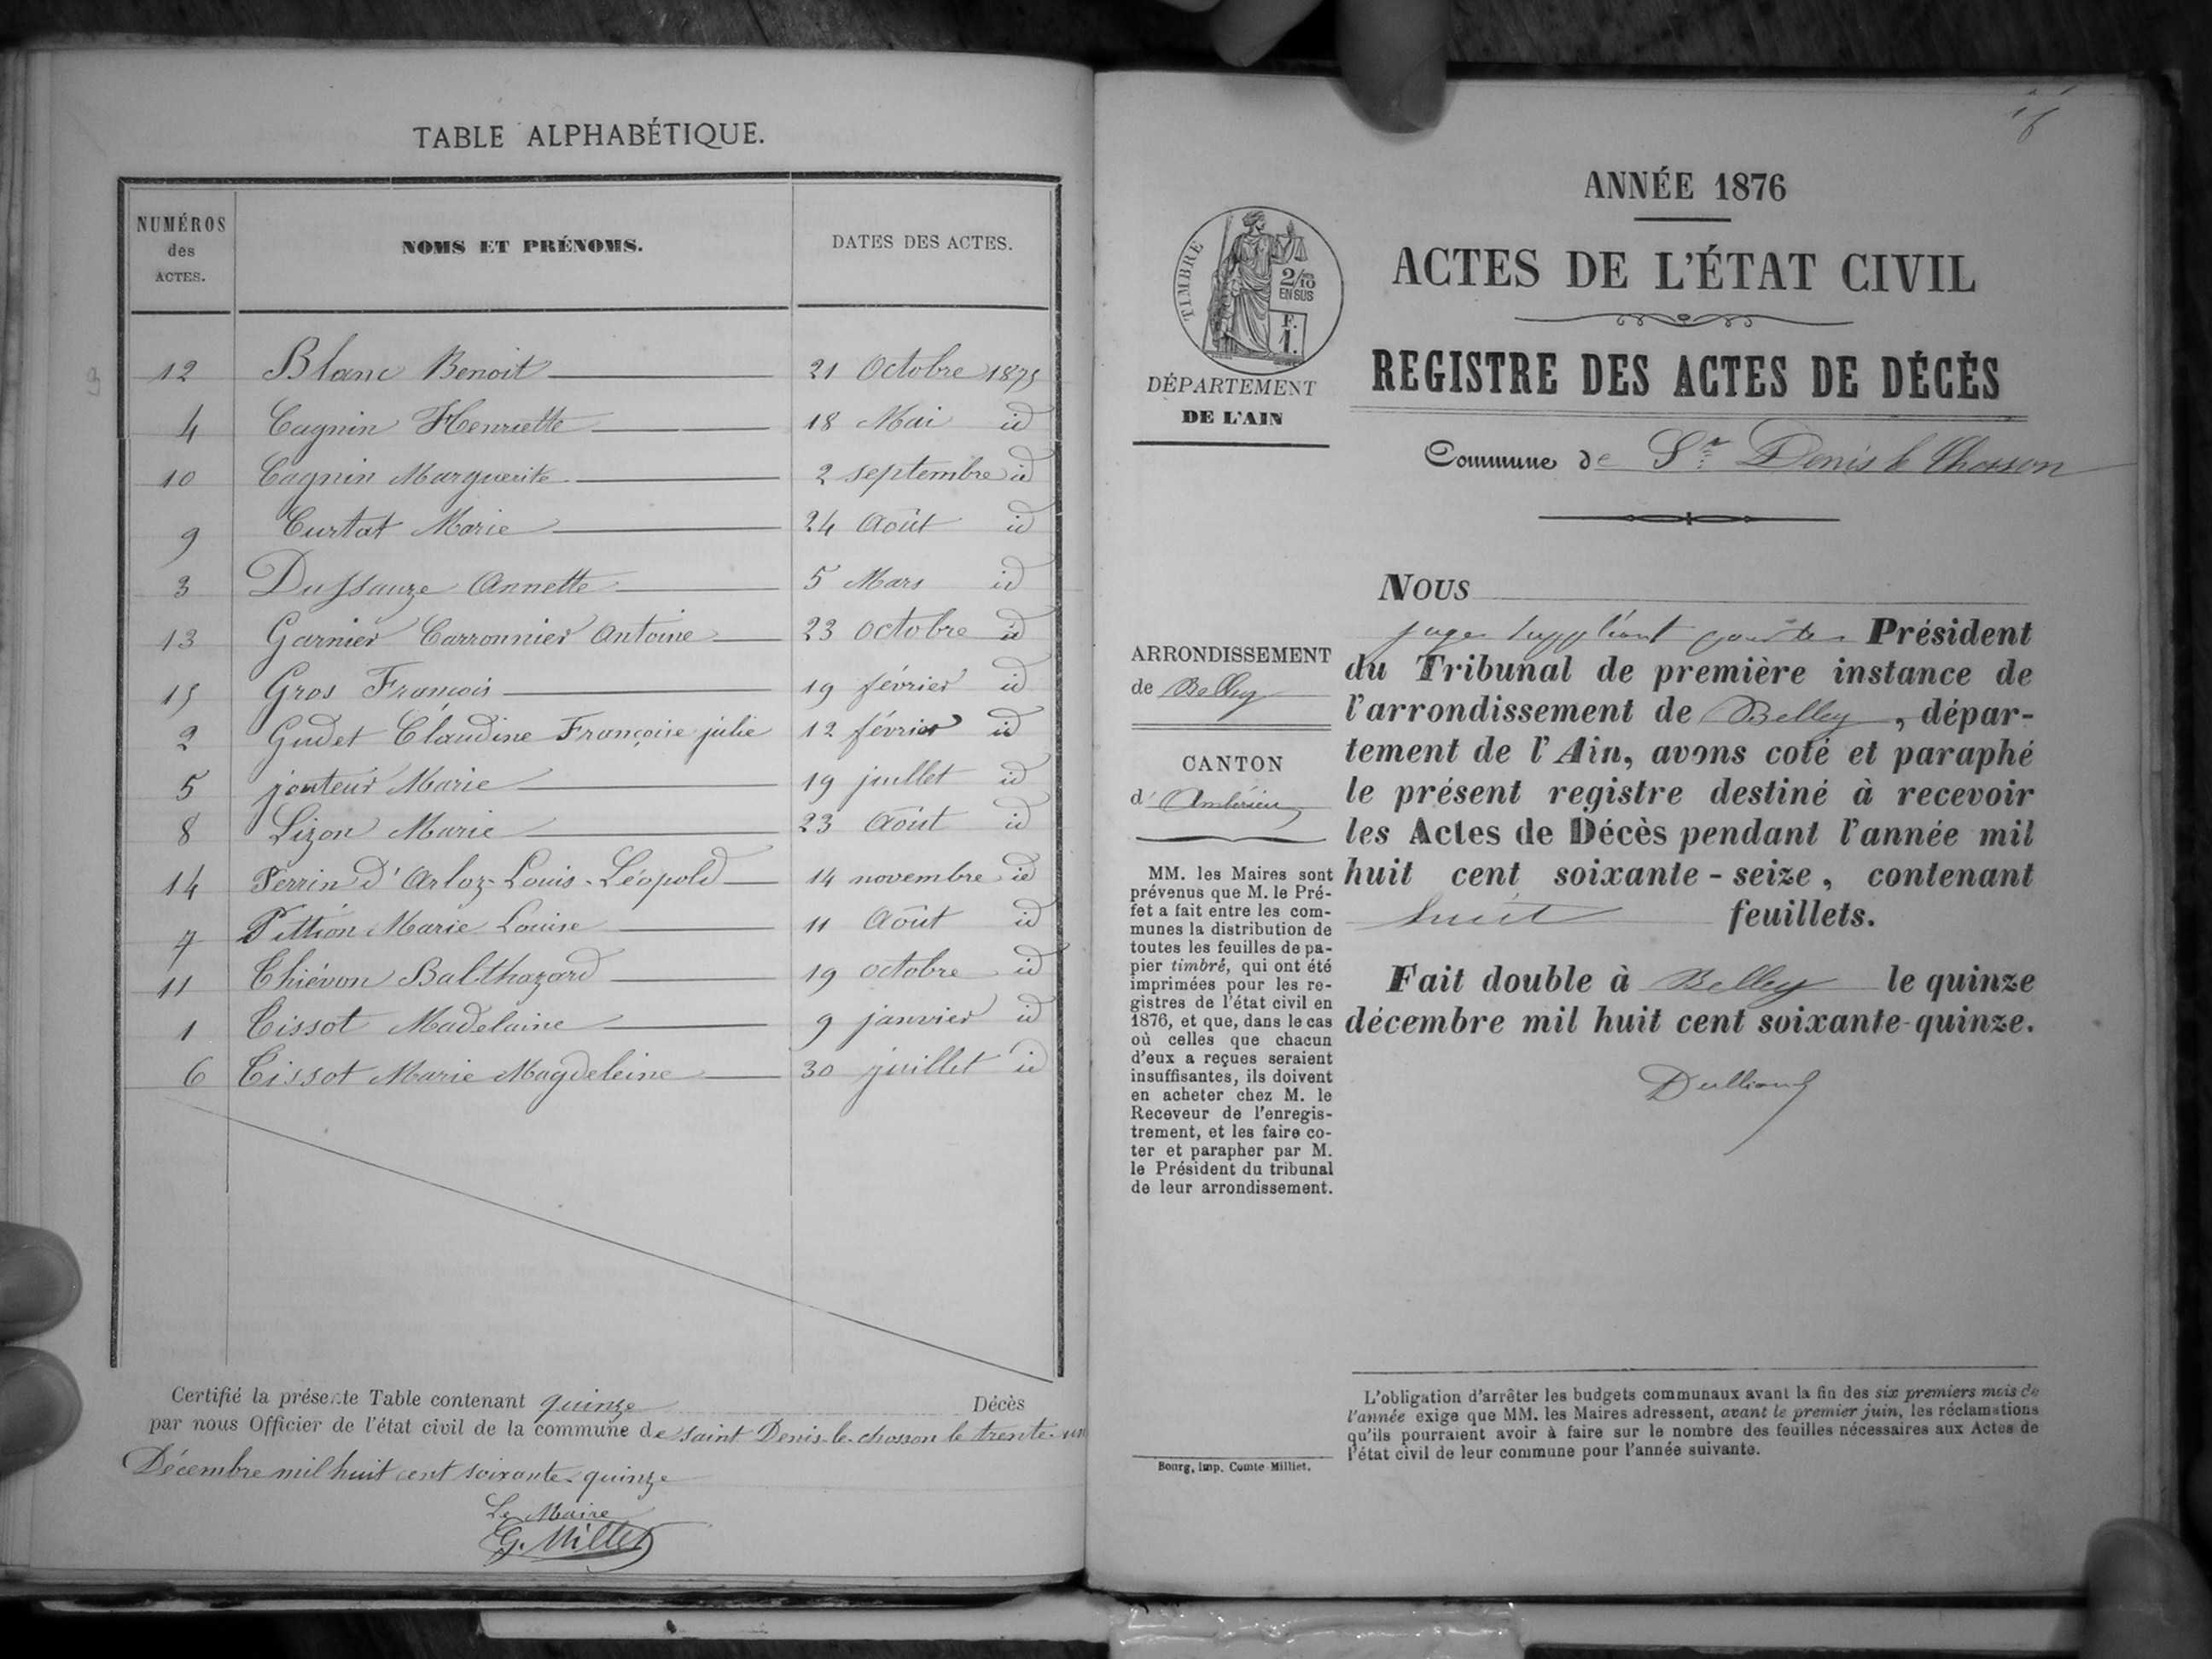 TABLE ALPHABÉTIQUE.
NUMÉROS
des
ACTES.
NOMS ET PRÉNOMS.
DATES DES ACTES.
12 Blanc Benoit 21 Octobre 1875
4 Cagnin Henriette 18 Mai id
10 Cagnin Marguerite 2 septembre id
9 Curtat Marie 24 Août id
3 Dussauze Annette 5 Mars id
13 Garnier Carronnier Antoine 23 octobre id
15 Gros François 19 février id
2 Gudet Claudine Françoise julie 12 février id
5 jouteur Marie 19 juillet id
8 Lizon Marie 23 Août id
14 Perrin d'Arloz-Louis-Léopold 14 novembre id
7 Pittion Marie Louise 11 Août id
11 Thiévon Balthazard 19 octobre id
1 Tissot Madelaine 9 janvier id
6 Tissot Marie Magdeleine 30 juillet id
Certifié la présente Table contenant quinze Décès
par nous Officier de l'état civil de la commune de saint Denis-le-chosson le trente-un
Décembre mil huit cent soixante-quinze
Le Maire
G. Millet
ANNÉE 1876
ACTES DE L'ÉTAT CIVIL
REGISTRE DES ACTES DE DÉCÈS
Commune de St Denis le Chosson
TIMBRE
2/10
EN SUS
F.
1.
DÉPARTEMENT
DE L'AIN
ARRONDISSEMENT
de Belley
CANTON
d'Ambérieu
MM. les Maires sont
prévenus que M. le Pré-
fet a fait entre les com-
munes la distribution de
toutes les feuilles de pa-
pier timbré, qui ont été
imprimées pour les re-
gistres de l'état civil en
1876, et que, dans le cas
où celles que chacun
d'eux a reçues seraient
insuffisantes, ils doivent
en acheter chez M. le
Receveur de l'enregis-
trement, et les faire co-
ter et parapher par M.
le Président du tribunal
de leur arrondissement.
Bourg, Imp. Comte-Milliet.
NOUS
juge suppléant pour le Président
du Tribunal de première instance de
l'arrondissement de Belley, dépar-
tement de l'Ain, avons coté et paraphé
le présent registre destiné à recevoir
les Actes de Décès pendant l'année mil
huit cent soixante-seize, contenant
huit feuillets.
Fait double à Belley le quinze
décembre mil huit cent soixante-quinze.
L'obligation d'arrêter les budgets communaux avant la fin des six premiers mois de
l'année exige que MM. les Maires adressent, avant le premier juin, les réclamations
qu'ils pourraient avoir à faire sur le nombre des feuilles nécessaires aux Actes de
l'état civil de leur commune pour l'année suivante.